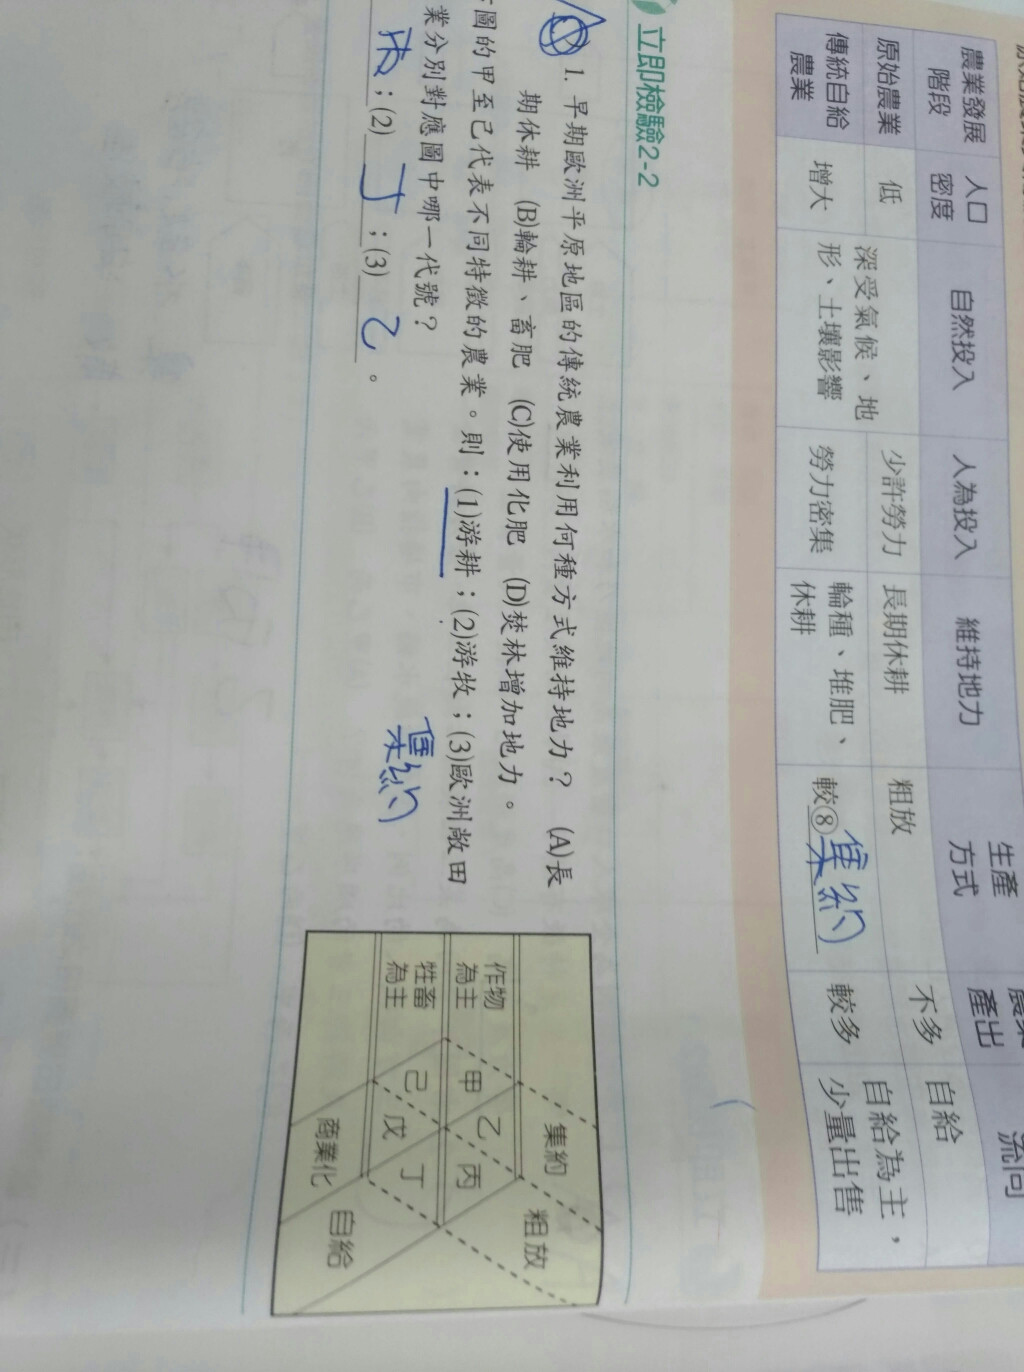 農業發展
階段
人口
密度
自然投入
人為投入
維持地力
生產
方式
產出
流向
原始農業
低
深受氣候、地
形、土壤影響
少許勞力
長期休耕
粗放
不多
自給
傳統自給
農業
增大
勞力密集
輪種、堆肥、
休耕
較⑧集約
較多
自給為主，
少量出售
立即檢驗2-2
1. 早期歐洲平原地區的傳統農業利用何種方式維持地力？ (A)長
期休耕 (B)輪耕、畜肥 (C)使用化肥 (D)焚林增加地力。
圖的甲至己代表不同特徵的農業。則：(1)游耕；(2)游牧；(3)歐洲敞田
業分別對應圖中哪一代號？
集約
；(2) 丁 ；(3) 乙 。
集約
粗放
作物
為主
甲
乙
丙
牲畜
為主
己
戊
丁
商業化
自給